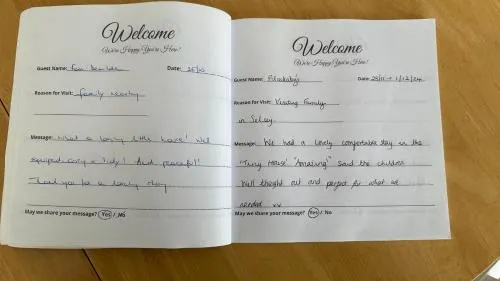 Welcome
We're Happy You're Here!
Guest Name:
Date: 25/10
Reason for Visit: family
Message: What a lovely little house! Well
equipped, cosy & tidy! And peaceful!
Thank you for a lovely stay
May we share your message? Yes / No
Welcome
We're Happy You're Here!
Guest Name:
Date:
Reason for Visit: Visiting Family
in Selsey
Message: We had a lovely comfortable stay in the
"Tiny House" "Amazing" said the children
Well thought out and perfect for what we
needed xx
May we share your message? Yes / No